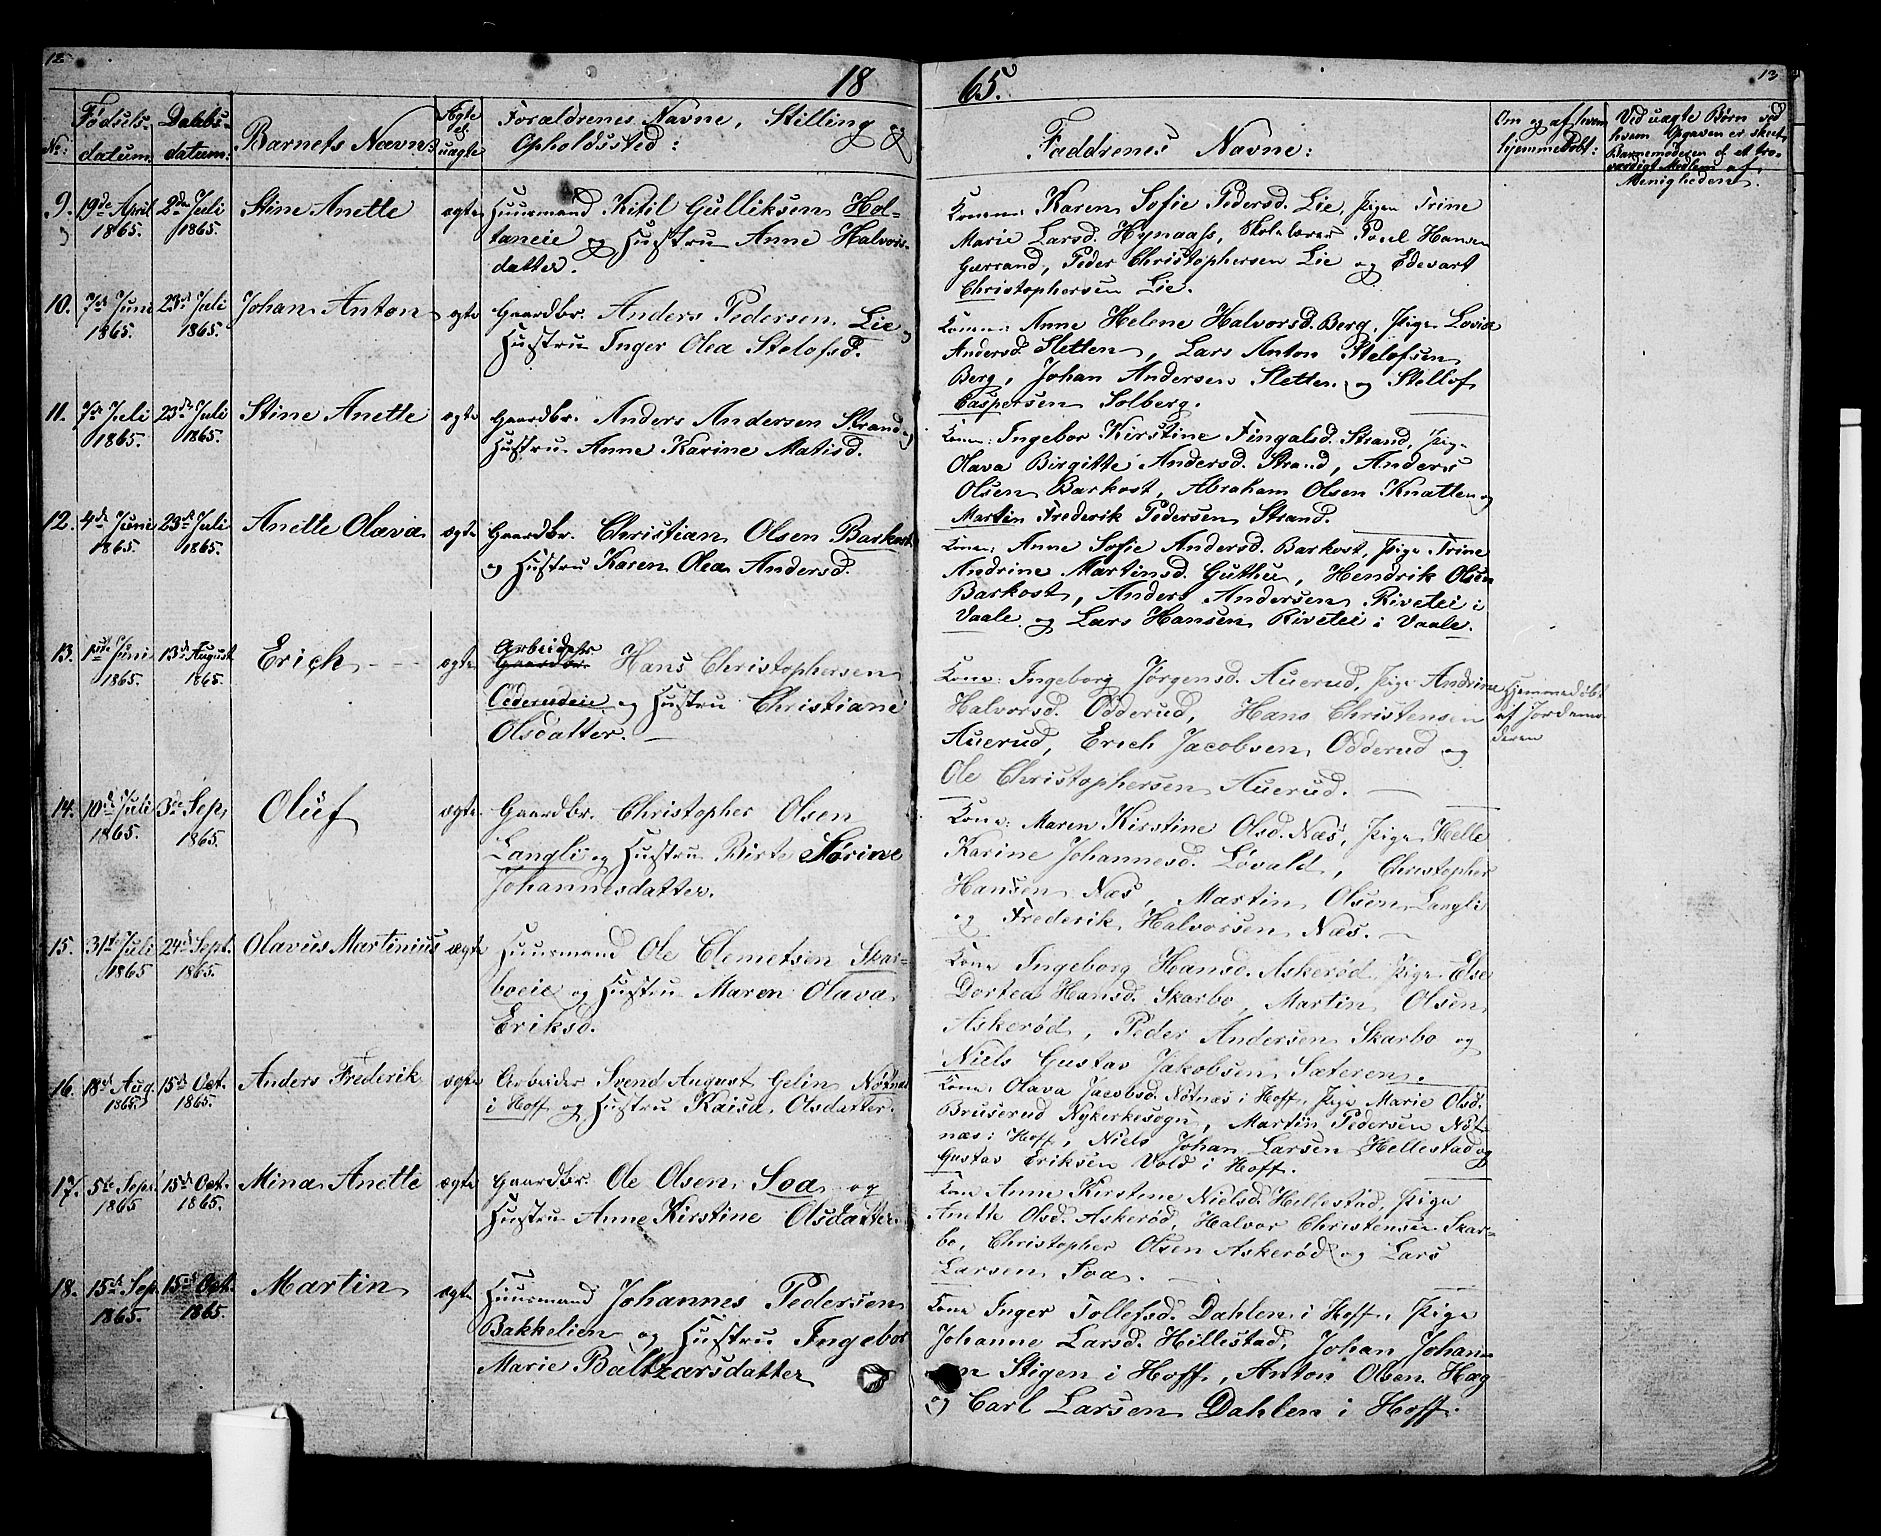 12
18
65.
13
No:
Fødsels-
datum
Daabs-
datum:
Barnets Navn:
Ægte
el.
uægte
Forældrenes Navne, Stilling &
Opholdssted:
Faddrenes Navne:
Om og af hvem
hjemmedøbt:
Ved uægte Børn ved
hvem Opgaven er skeet,
Barnemoderen el. et tro-
værdigt Medlem af
Menigheden.
9.
19de April
1865.
2den Juli
1865.
Stine Anette
ægte
Huusmand Kitil Gulliksen Hol-
taneie og Hustru Anne Halvors-
datter.
Konen: Karen Sofie Pedersd. Lie, Pigen Trine
Marie Larsd. Hynaas, Skolelærer Poul Hansen
Gærrand, Peder Christophersen Lie og Edevart
Christophersen Lie.
10.
7de Juni
1865.
23de Juli
1865.
Johan Anton
ægte
Gaardbr. Anders Pedersen Lie og
Hustru Inger Olea Stelofsd.
Konen: Anne Helene Halvorsd. Berg, Pige Lovise
Andersd. Sletten, Lars Anton Stelofsen
Berg, Johan Andersen Sletten og Stellof
Caspersen Solberg.
11.
7de Juli
1865.
23de Juli
1865.
Stine Anette
ægte
Gaardbr. Anders Andersen Strand og
Hustru Anne Karine Matisd.
Kone: Ingebor Kirstine Fingalsd. Strand, Pige
Olava Birgitte Andersd. Strand, Anders
Olsen Barkost, Abraham Olsen Knatten og
Martin Frederik Pedersen Strand.
12.
4de Juni
1865.
23de Juli
1865.
Anette Olava
ægte
Gaardbr. Christian Olsen Barkost
og Hustru Karen Olea Andersd.
Kone: Anne Sofie Andersd. Barkost, Pige Trine
Andrine Martinsd. Guthu, Hendrik Olsen
Barkost, Anders Andersen Rivetei i
Vaale og Lars Hansen Rivetei i Vaale.
13.
1ste Juni
1865.
13de August
1865.
Erich
ægte
Arbeider
Gaardbr. Hans Christophersen
Odderudeie og Hustru Christiane
Olsdatter.
Kone: Ingeborg Jørgensd. Auerud, Pige Andrine
Halvorsd. Odderud, Hans Christensen
Auerud, Erich Jacobsen Odderud og
Ole Christophersen Auerud.
Hjemmedøbt
af Jordemo-
deren
14.
10de Juli
1865.
3de Sep.
1865.
Oluf
ægte
Gaardbr. Christopher Olsen
Langli og Hustru Birte Sørine
Johannesdatter.
Kone: Maren Kirstine Olsd. Næs, Pige Helle
Karine Johannesd. Løvald, Christopher
Hansen Næs, Martin Olsen Langli
og Frederik Halvorsen Næs.
15.
31te Juli
1865
24de Sept.
1865.
Olavus Martinius
ægte
Huusmand Ole Clemetsen Skar-
boeie og Hustru Maren Olava
Eriksd.
Kone Ingeborg Hansd. Askerød, Pige Else
Dortea Hansd. Skarbo, Martin Olsen
Askerød, Peder Andersen Skarbo og
Niels Gustav Jakobsen Sæteren.
16.
18de Aug.
1865.
15de Oct.
1865.
Anders Frederik
ægte
Arbeider Svend August Gelin Nøtnæs
i Hoff og Hustru Kaisa Olsdatter.
Kone: Olava Jacobsd. Nøtnæs i Hoff, Pige Marie Olsd.
Bruserud Nykerkesogn, Martin Pedersen Nøt-
næs i Hoff, Niels Johan Larsen Hellestad og
Gustav Eriksen Vold i Hoff.
17.
5te Sep.
1865
15de Oct.
1865.
Mina Anette
ægte
Gaardbr. Ole Olsen Soa og
Hustru Anne Kirstine Olsdatter.
Kone Anne Kirstine Nielsd. Hillestad, Pige
Anette Olsd. Askerød, Halvor Christensen Skar-
bo, Christopher Olsen Askerød og Lars
Larsen Soa.
18.
15de Sep.
1865.
15de Oct.
1865.
Martin
ægte
Huusmand Johannes Pedersen
Bakkelien og Hustru Ingebor
Marie Baltzarsdatter
Kone Inger Tollefsd. Dahlen i Hoff, Pige
Johanne Larsd. Hillestad, Johan Johan-
sen Stigen i Hoff, Anton Olsen Hæg
og Carl Larsen Dahlen i Hoff.